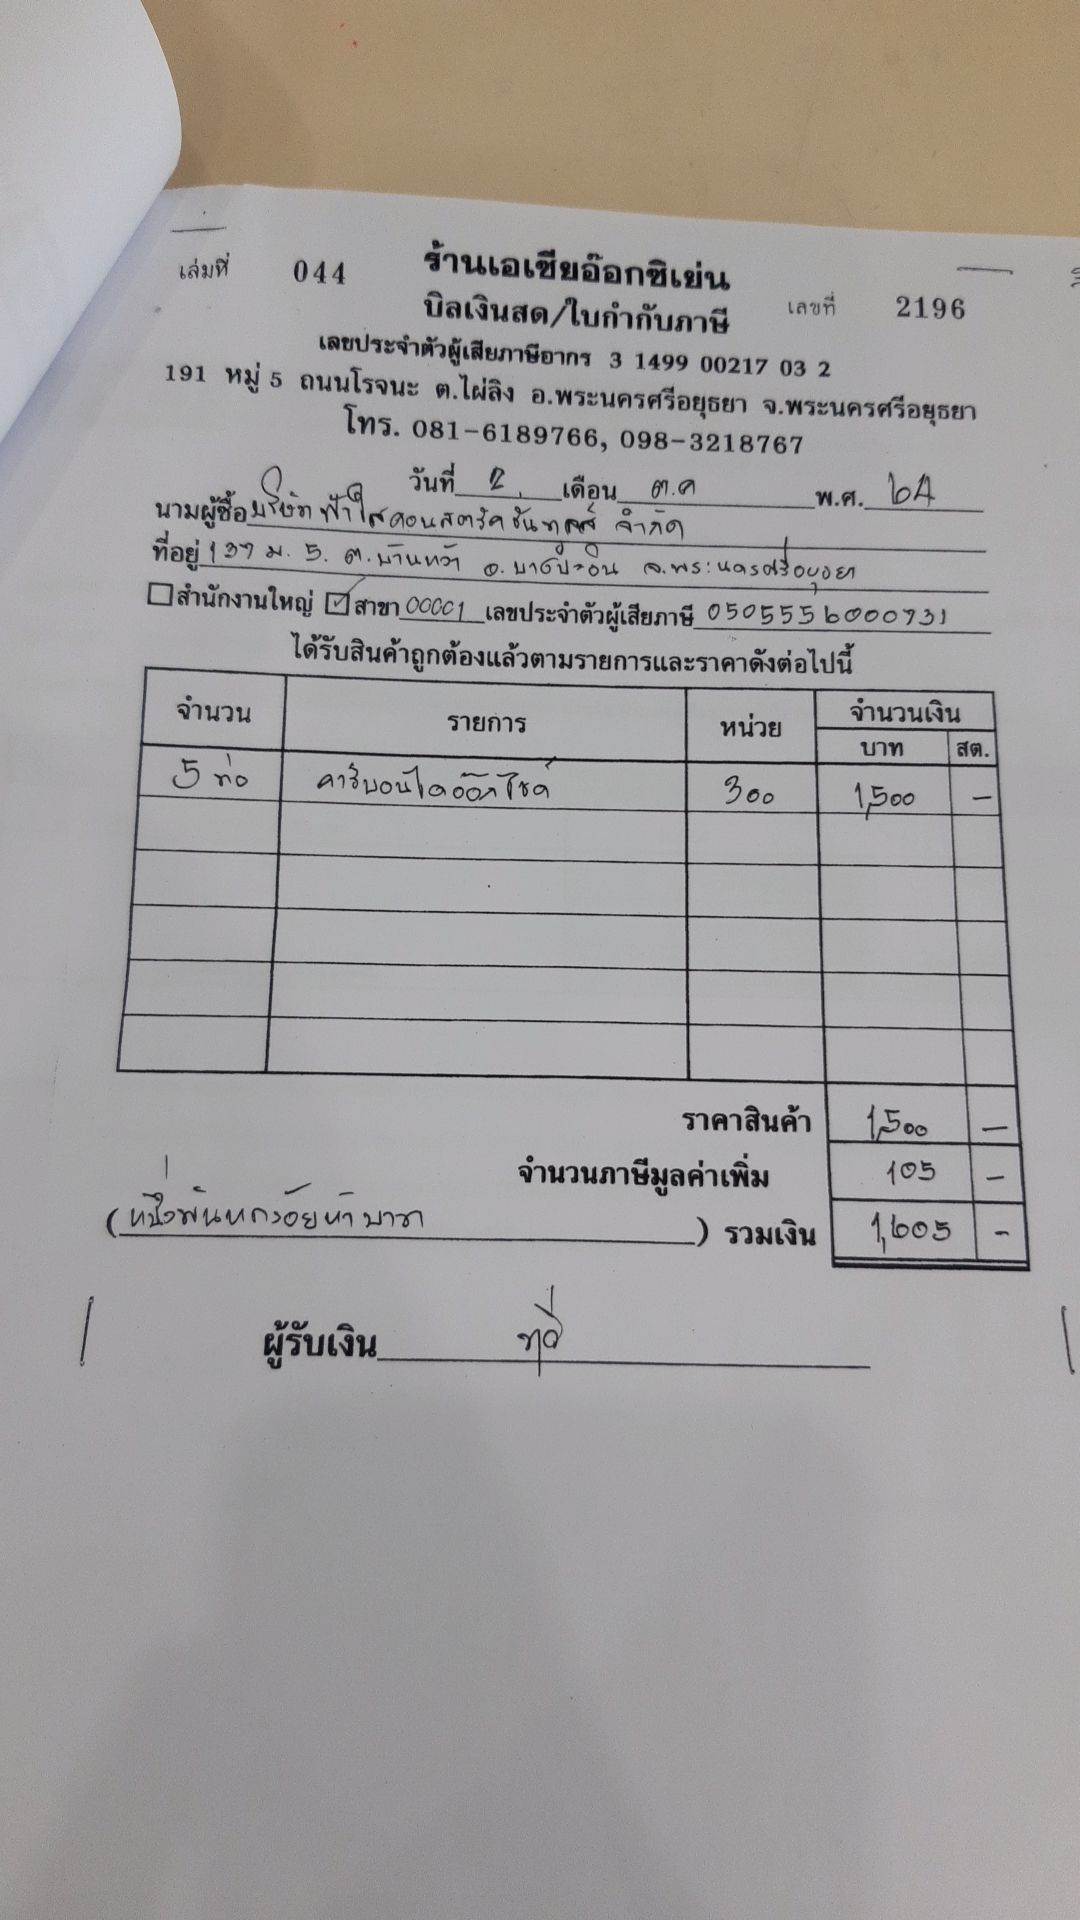 เล่มที่ 044 ร้านเอเซียอ๊อกซิเย่น
บิลเงินสด/ใบกำกับภาษี เลขที่ 2196
เลขประจำตัวผู้เสียภาษีอากร 3 1499 00217 03 2
191 หมู่ 5 ถนนโรจนะ ต.ไผ่ลิง อ.พระนครศรีอยุธยา จ.พระนครศรีอยุธยา
โทร. 081-6189766, 098-3218767
วันที่ 2 เดือน ต.ค พ.ศ. 64
นามผู้ซื้อ บริษัท ฟ้าใสคอนสตรัคชั่นทูลส์ จำกัด
ที่อยู่ 137 ม. 5. ต.บ้านหว้า อ.บางปะอิน จ.พระนครศรีอยุธยา
สำนักงานใหญ่ ✓ สาขา 00001 เลขประจำตัวผู้เสียภาษี 0505556000731
ได้รับสินค้าถูกต้องแล้วตามรายการและราคาดังต่อไปนี้
จำนวน รายการ หน่วย จำนวนเงิน
บาท สต.
5 ท่อ คาร์บอนไดอ๊อกไซด์ 300 1,500 -
ราคาสินค้า 1,500 -
จำนวนภาษีมูลค่าเพิ่ม 105 -
(หนึ่งพันหกร้อยห้าบาท) รวมเงิน 1,605 -
ผู้รับเงิน